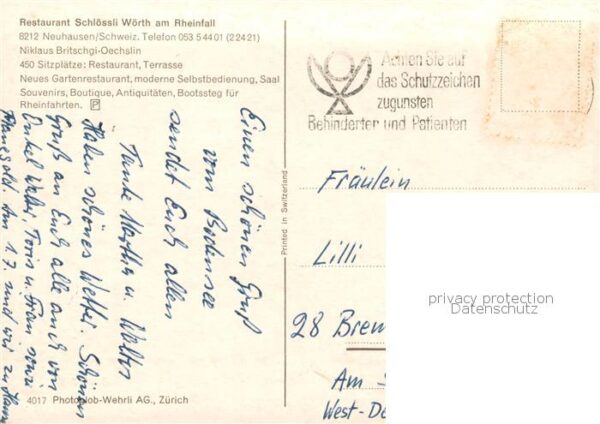 Restaurant Schlössli Wörth am Rheinfall
8212 Neuhausen/Schweiz. Telefon 053 5 44 01 (2 24 21)
Niklaus Britschgi-Oechslin
450 Sitzplätze: Restaurant, Terrasse
Neues Gartenrestaurant, moderne Selbstbedienung, Saal
Souvenirs, Boutique, Antiquitäten, Bootssteg für
Rheinfahrten. P
Einen schönen Gruß
vom Bodensee
sendet Euch allen
Tante Martha u. Walter
Haben schönes Wetter. Schönen
Gruß an Euch alle auch von
Onkel Walter, u. Frau, sowie
Am 17. sind wir zu Haus
4017 Photoglob-Wehrli AG., Zürich
Printed in Switzerland
Achten Sie auf
das Schutzzeichen
zugunsten
Behinderter und Patienten
Fräulein
Lilli
28 Brem
Am
West-De
privacy protection
Datenschutz